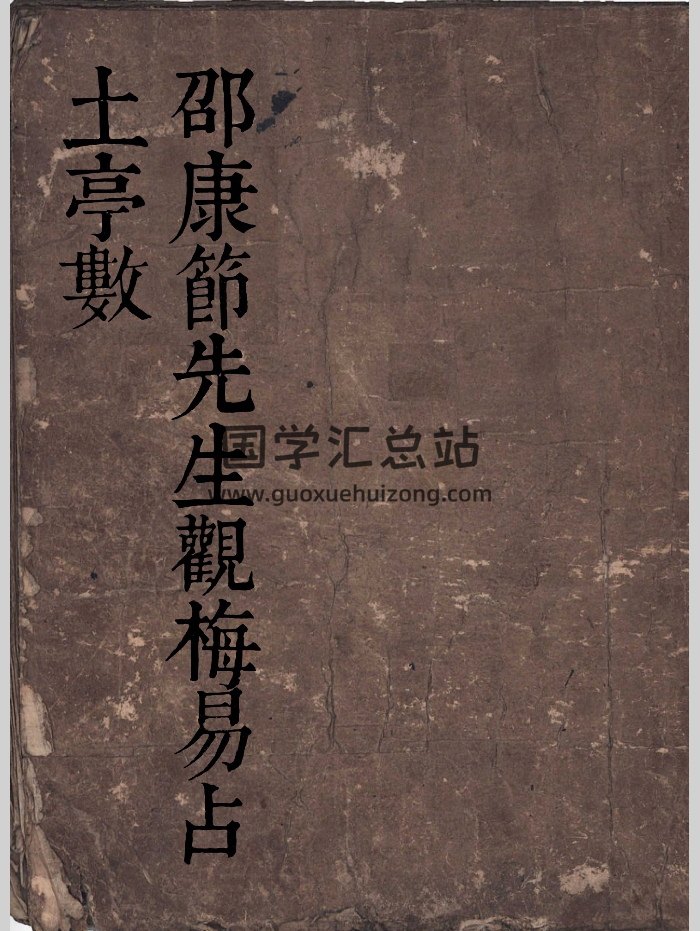 邵康節先生觀梅易占
土亭數
国学汇总站
www.guoxuehuizong.com